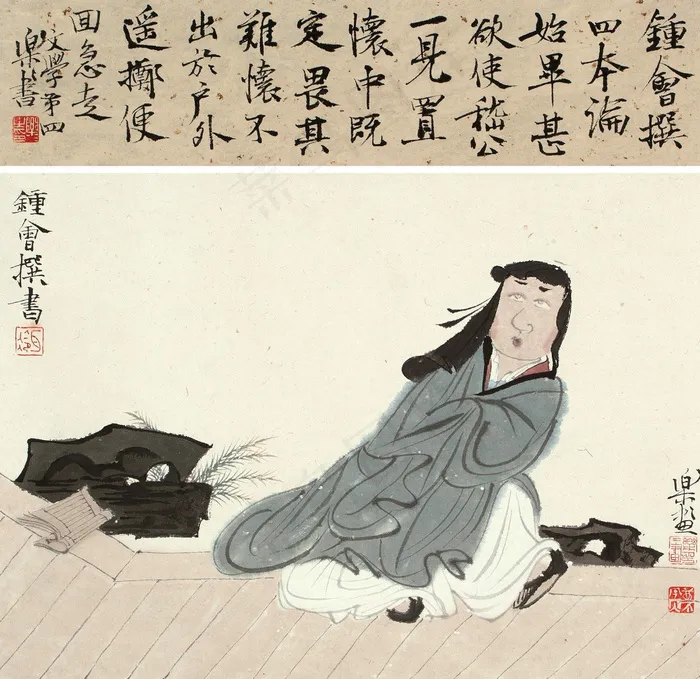 鍾會撰
四本論
始畢甚
欲使嵇公
一見置
懷中既
定畏其
難懷不
出於户外
遥擲便
回急走
文學第四
楽書
鍾會撰書
楽畫